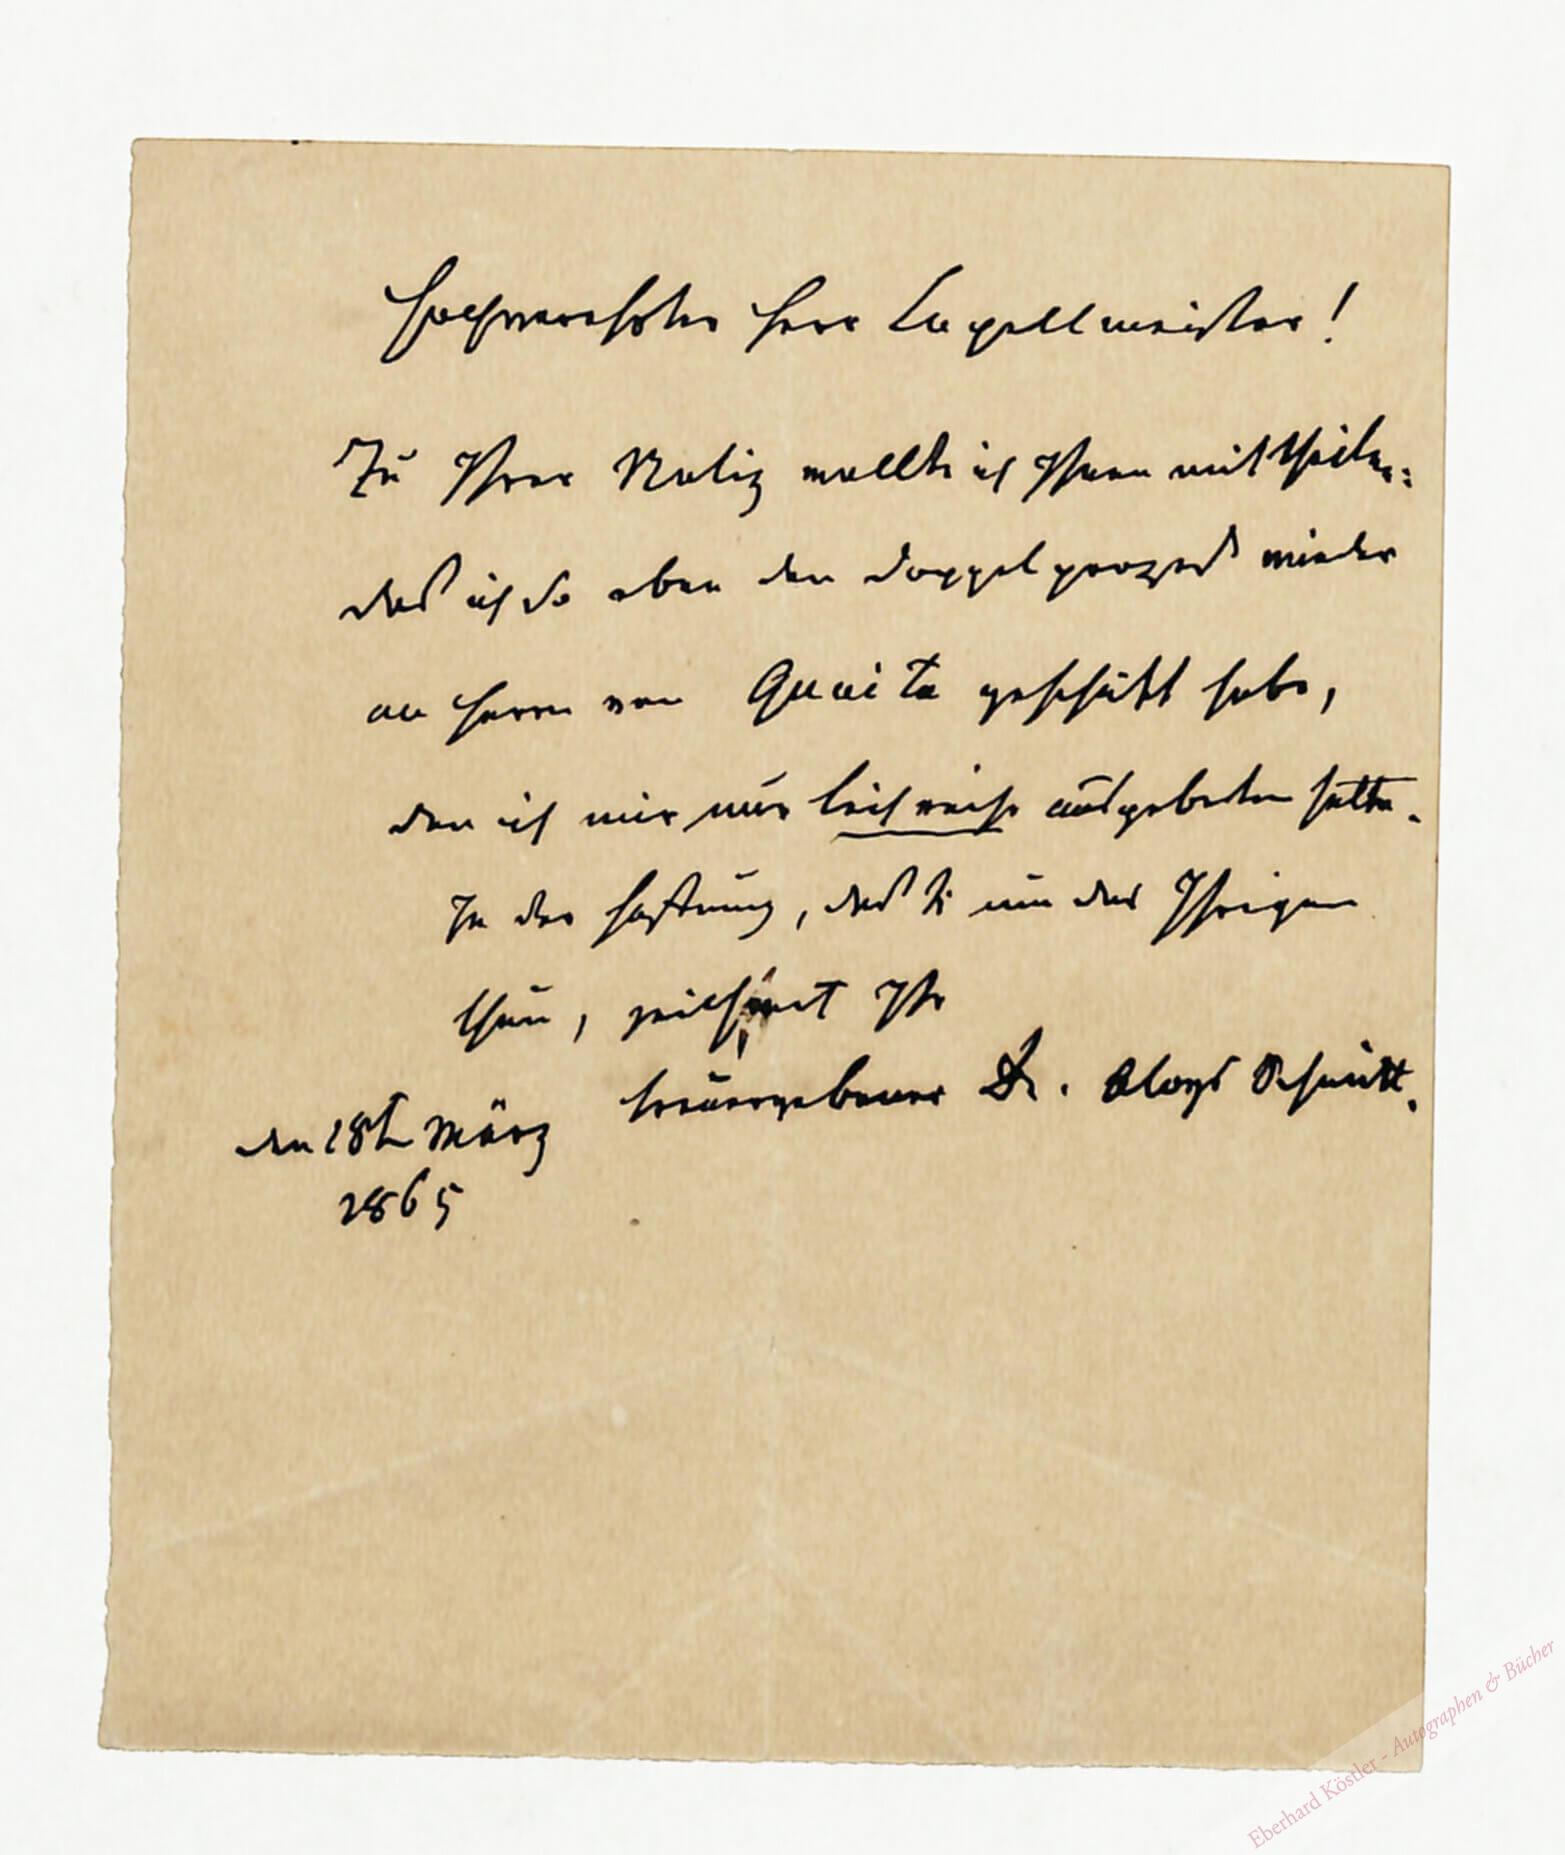 Hochverehrter Herr Capellmeister!
Zu Ihrer Notiz wollte ich Ihnen mittheilen:
daß ich so eben den Doppelprozeß wieder
an Herrn von Guaita geschickt habe,
den ich mir nur leihweise ausgebeten hatte.
In der Hoffnung, daß Sie nun das Ihrigen
thun, zeichnet Ihr
treuergebener Dr. Aloys Schmitt.
den 18t März
1865
Eberhard Köstler - Autographen & Bücher